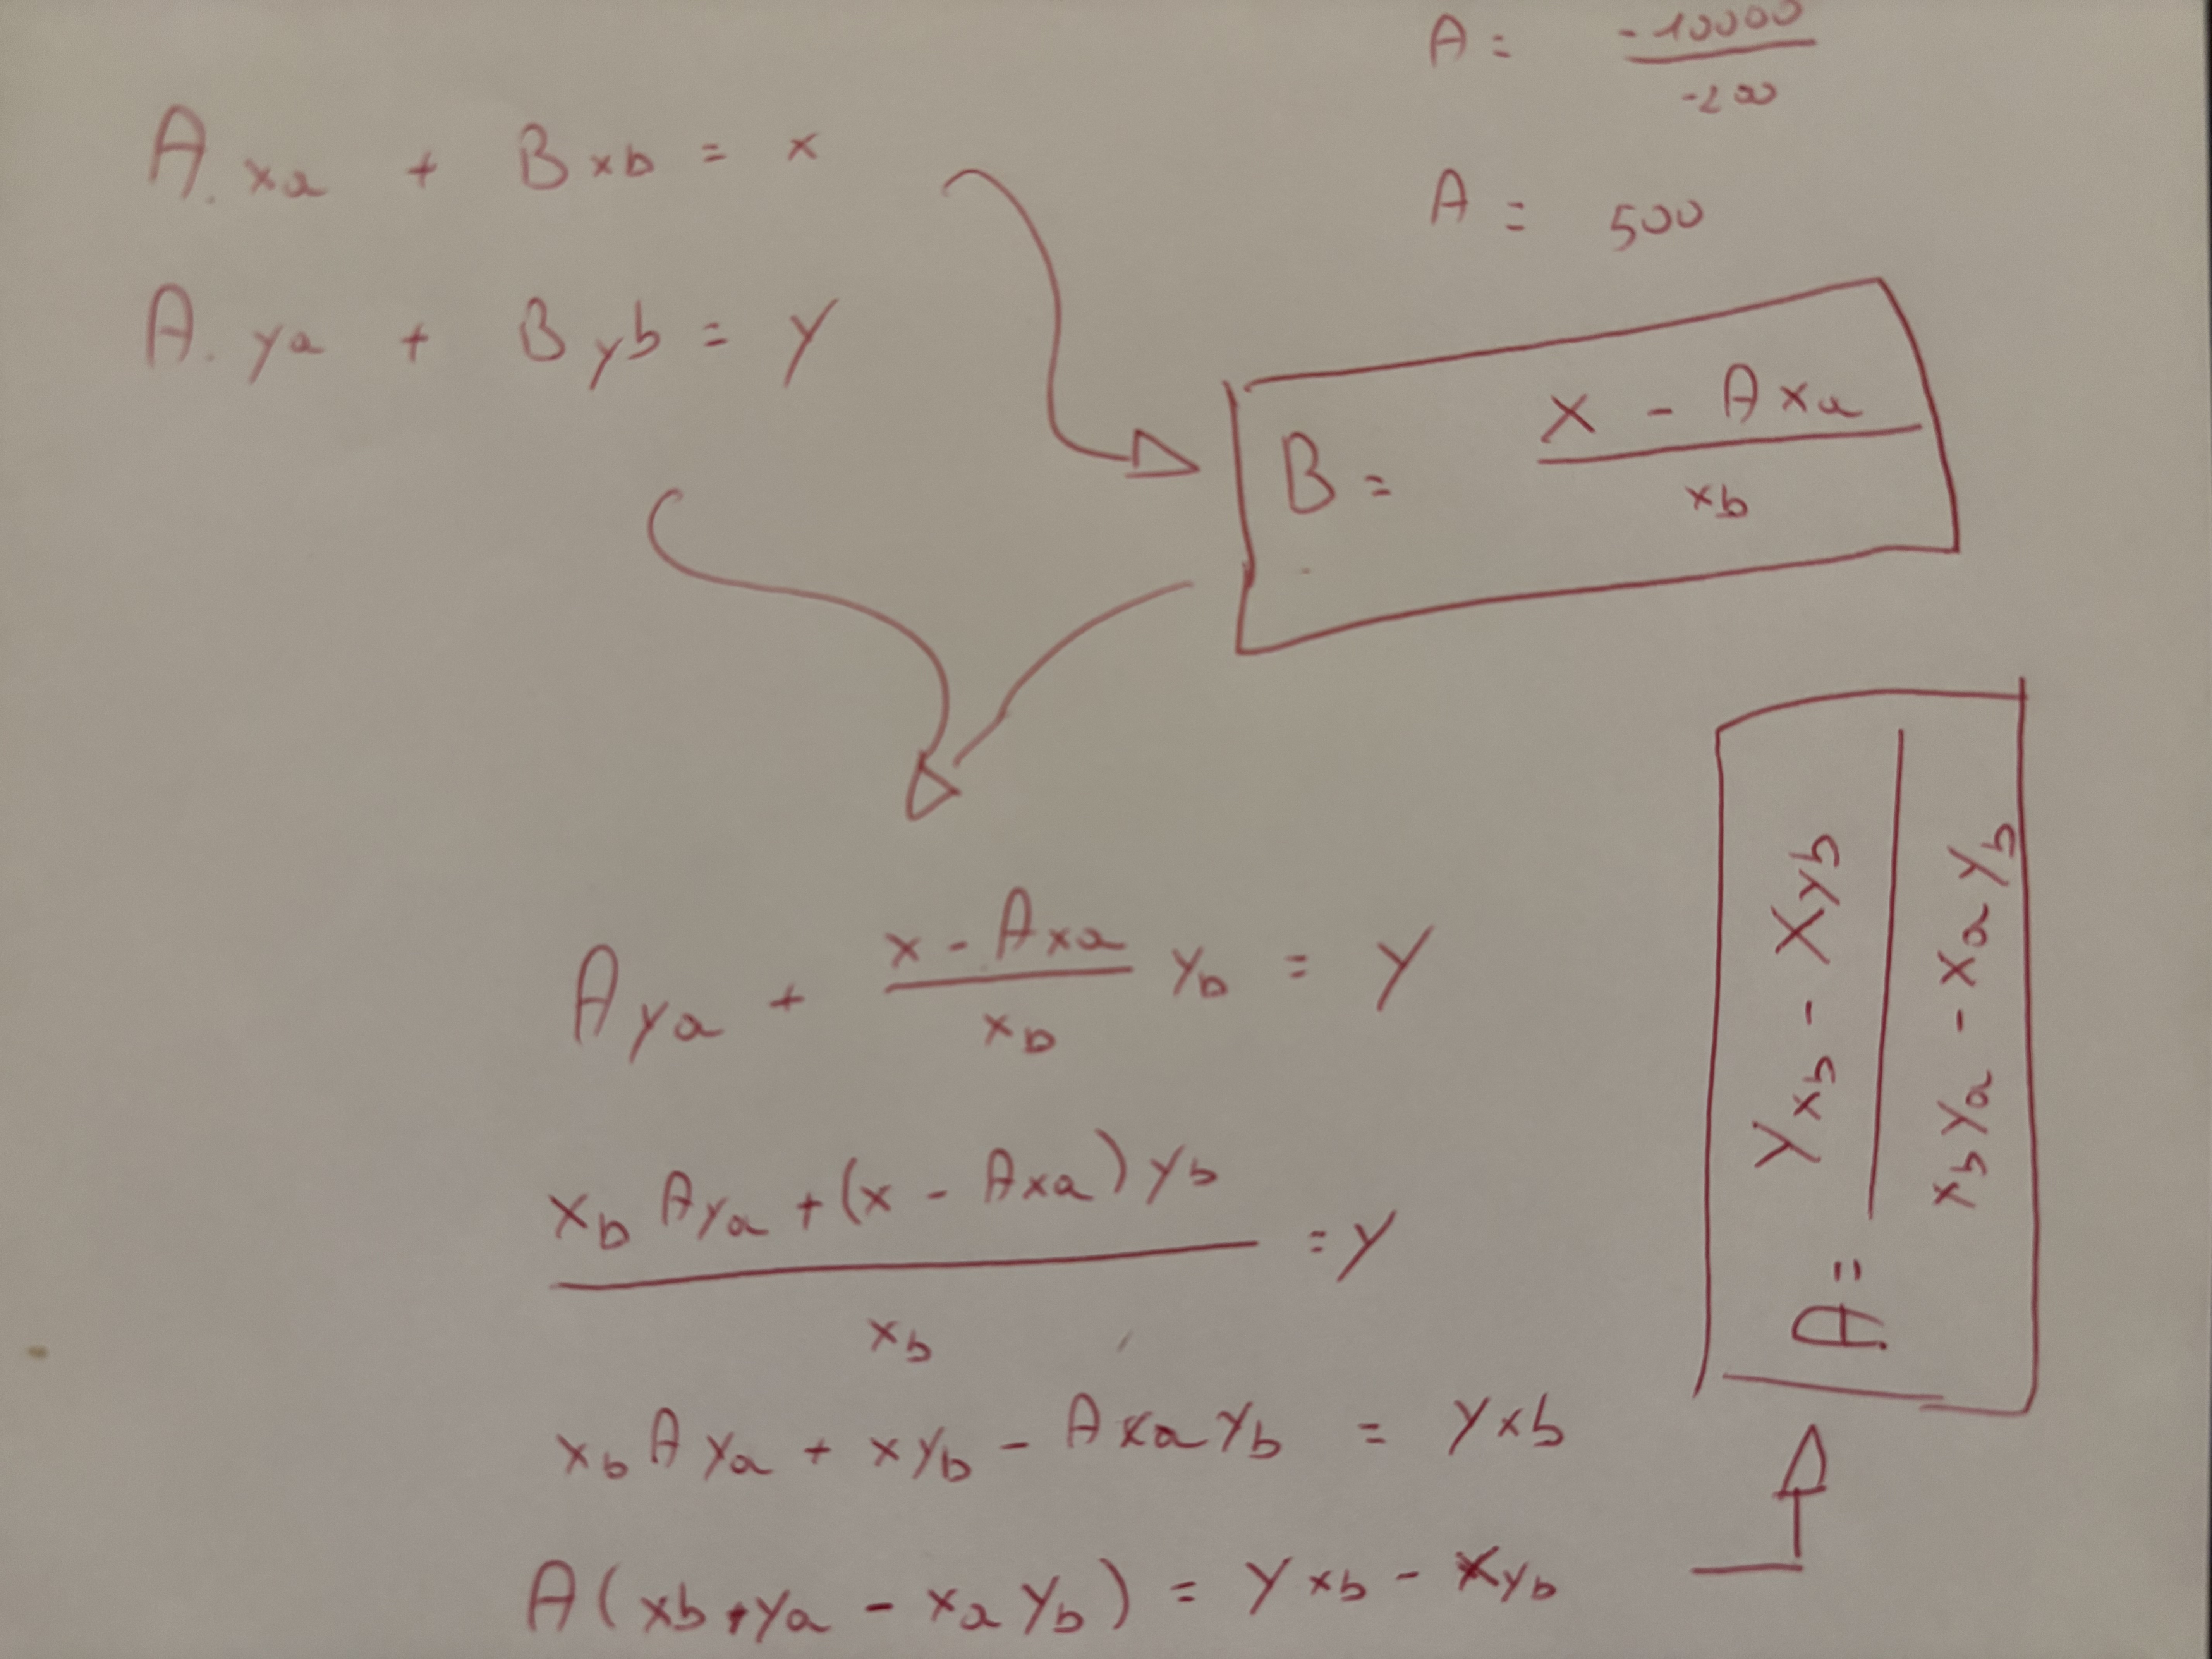 A = -10000 / -200
A = 500
A. xa + B xb = x
A. ya + B yb = y
B = (x - A xa) / xb
A ya + (x - A xa) / xb yb = y
(xb A ya + (x - A xa) yb) / xb = y
xb A ya + x yb - A xa yb = y xb
A ( xb . ya - xa yb ) = y xb - x yb
A = (y xb - x yb) / (xb ya - xa yb)